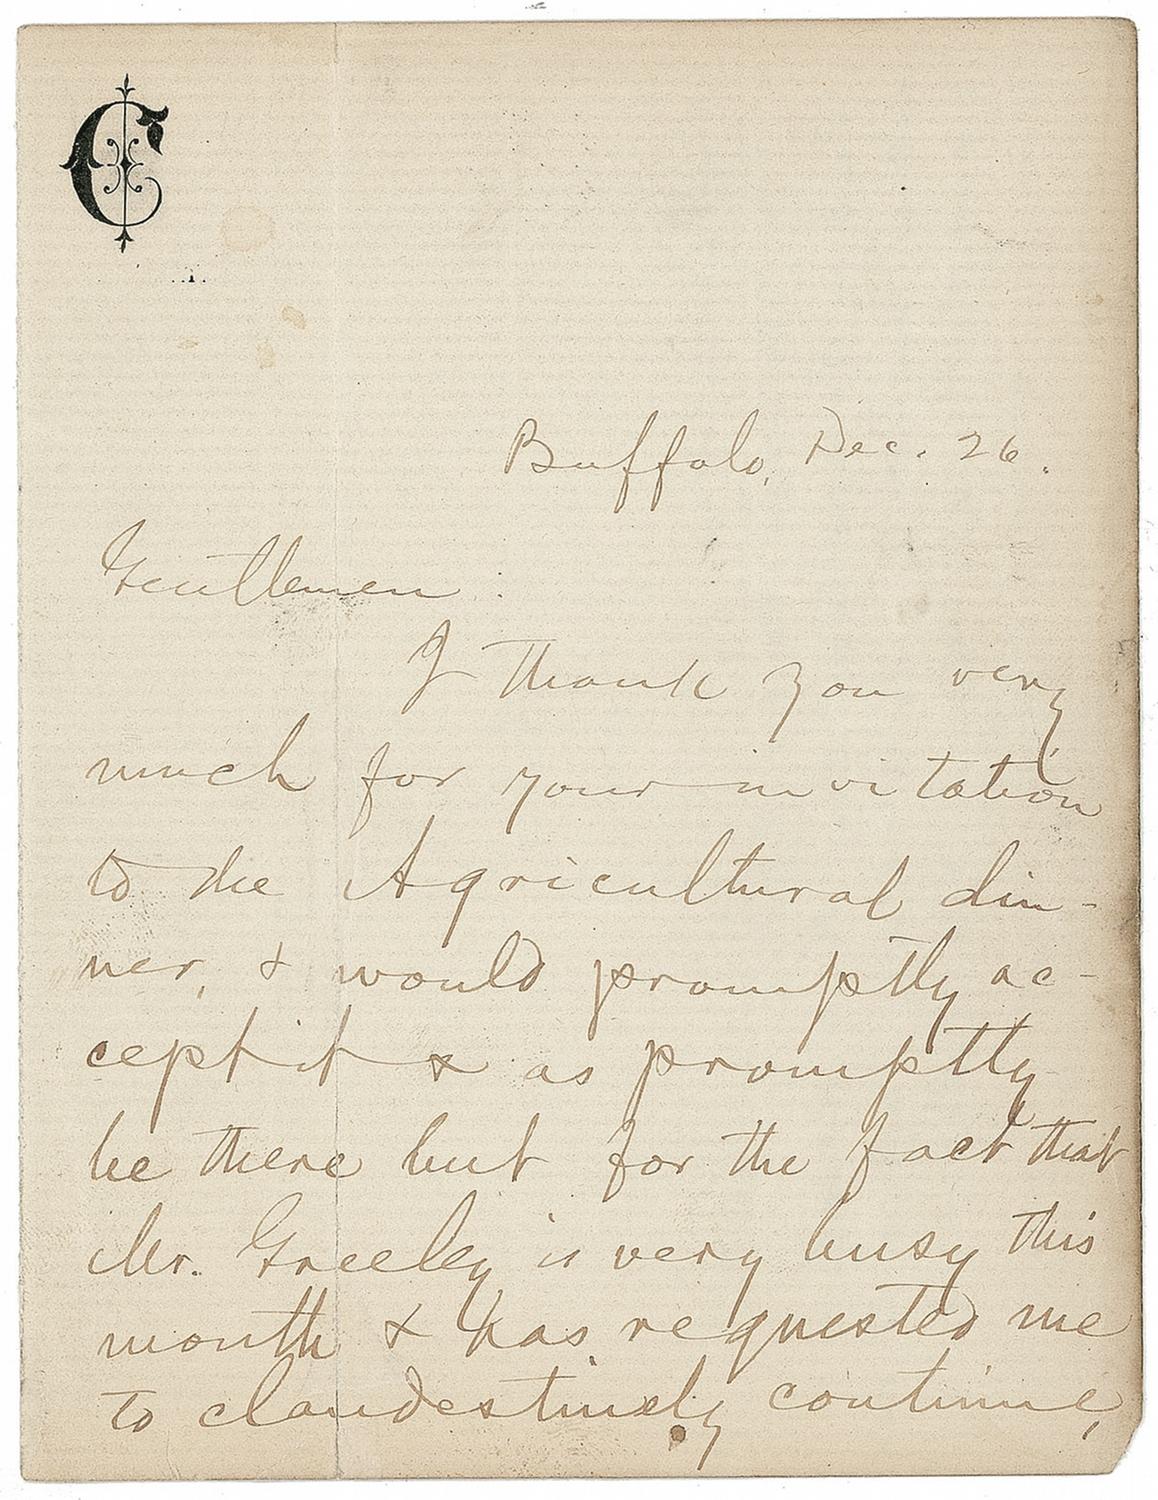 C
Buffalo, Dec. 26.
Gentlemen:
I thank you very
much for your invitation
to the Agricultural din-
ner, & would promptly ac-
cept it & as promptly
be there but for the fact that
Mr. Greeley is very busy this
month & has requested me
to clandestinely continue,